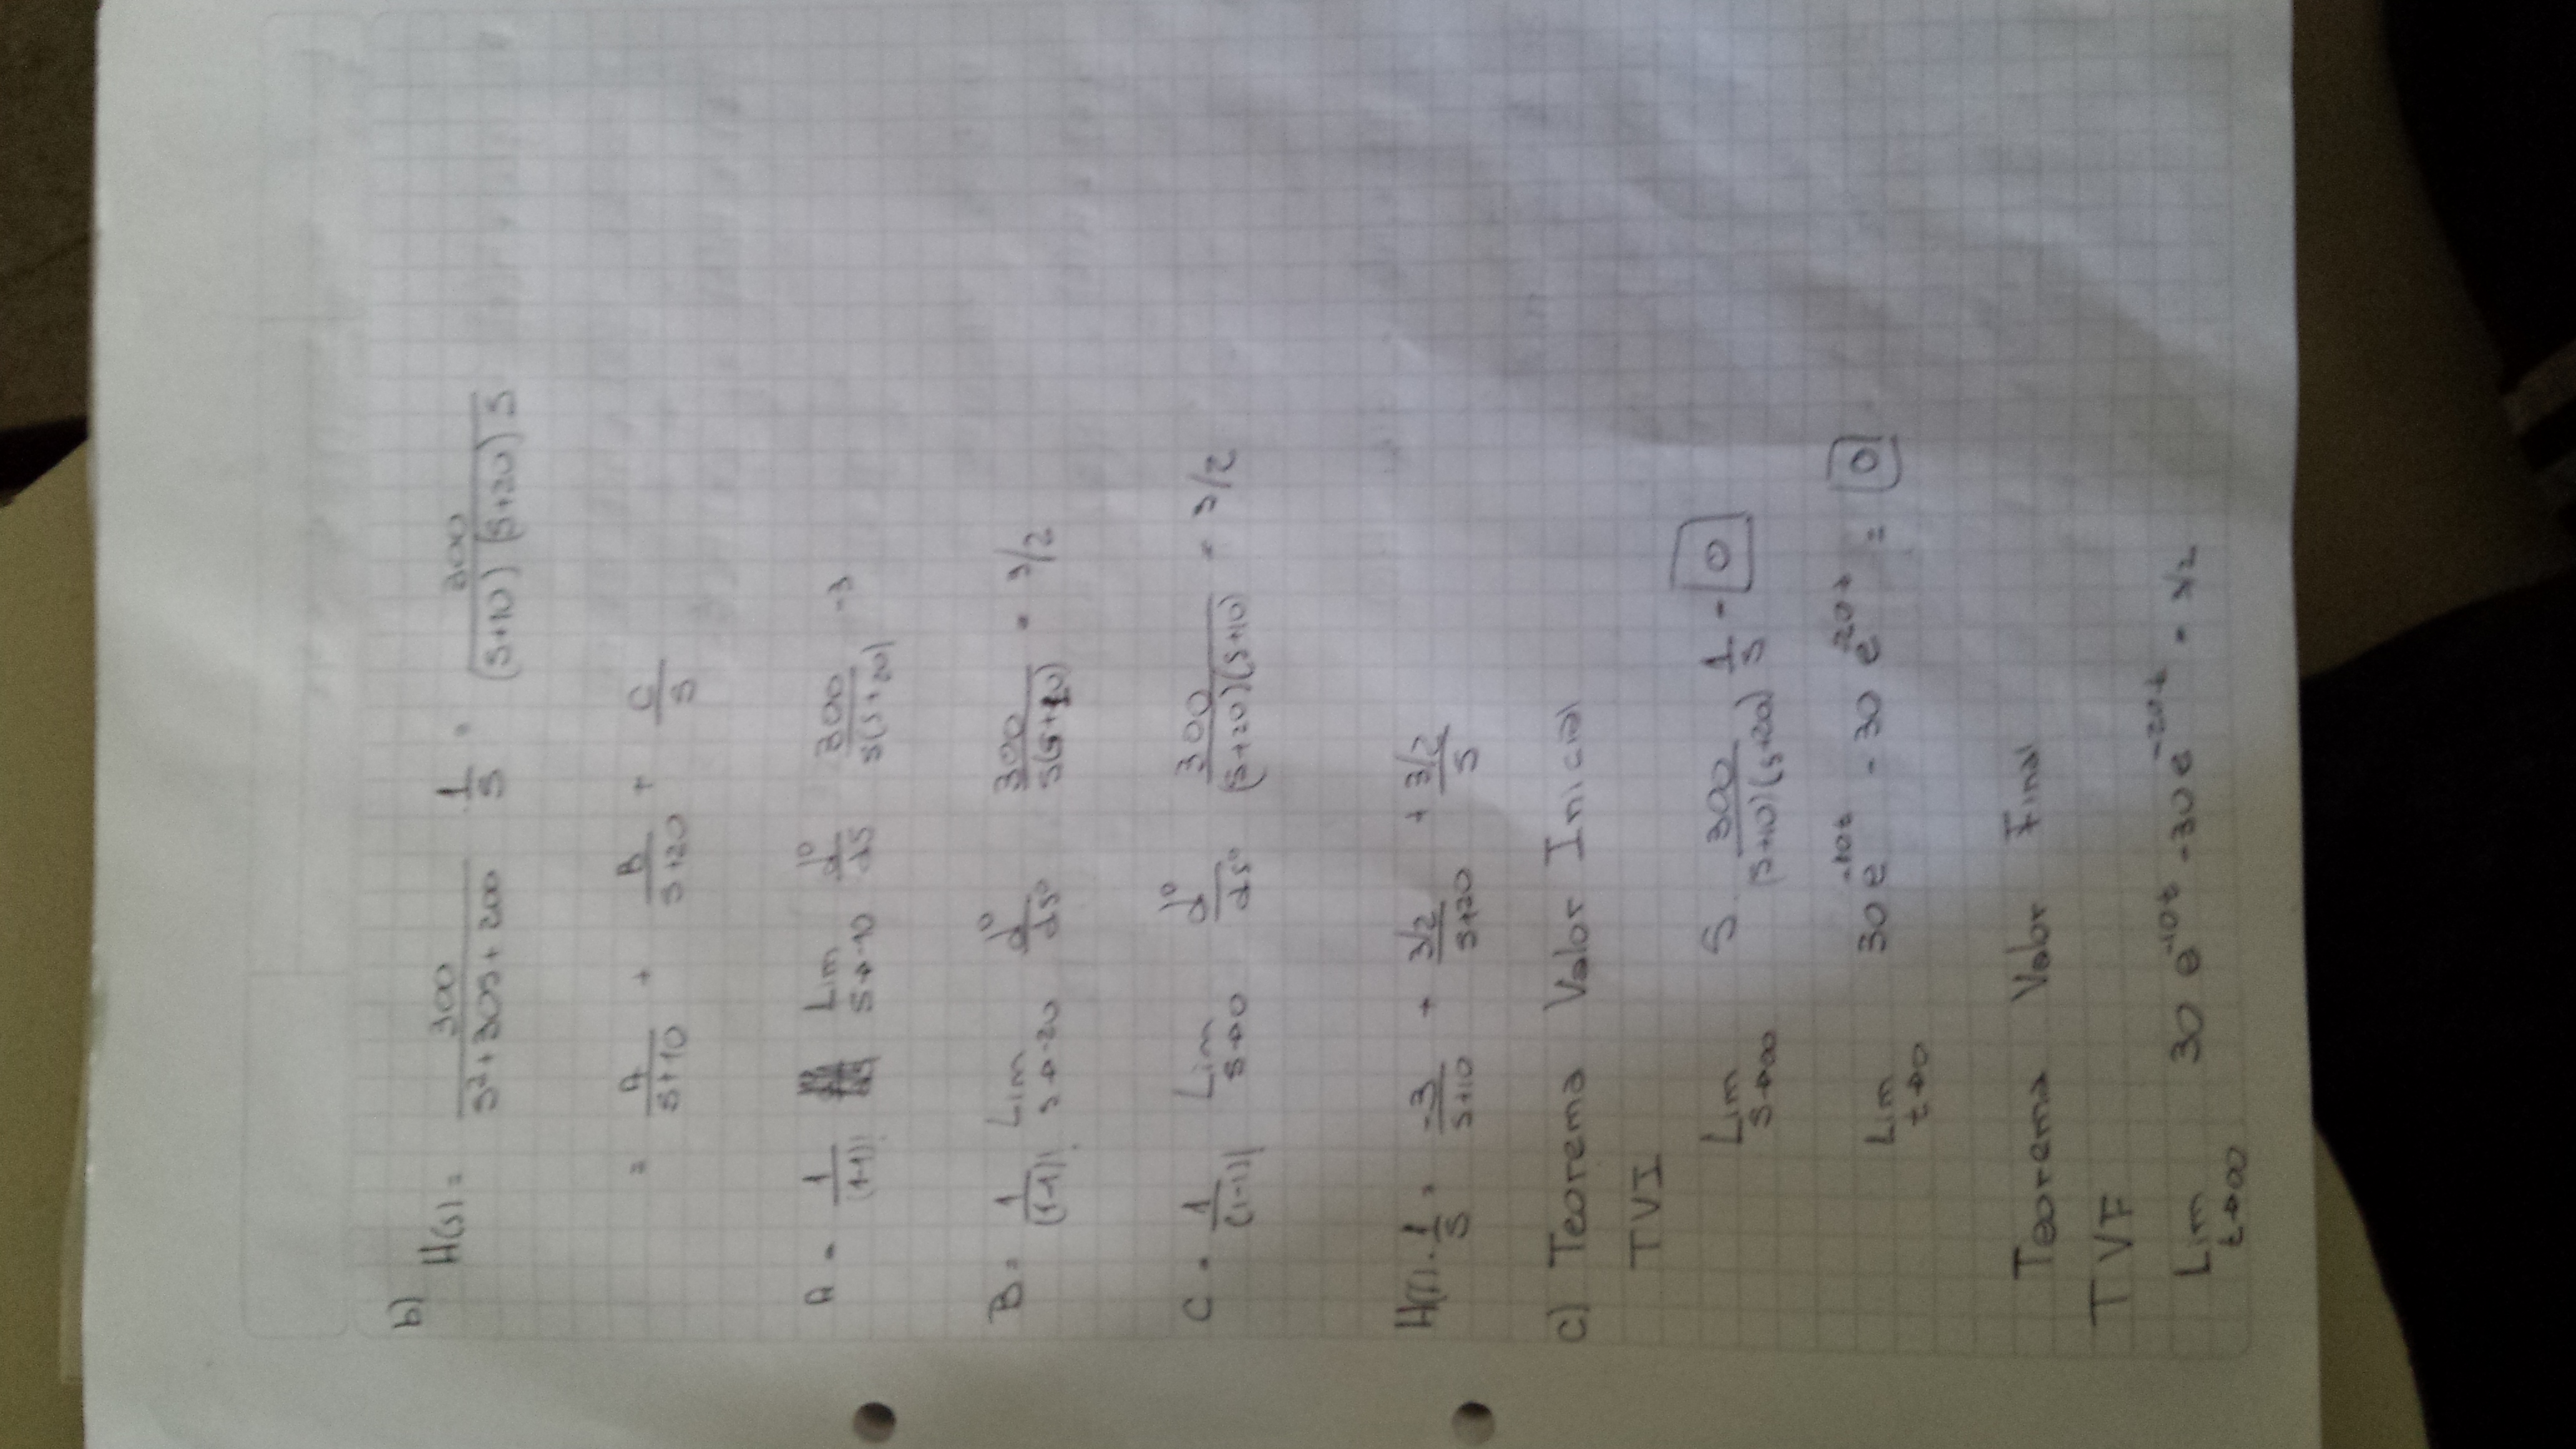 b)
H(s) = 300 / (s²+30s+200) · 1/s = 300 / ((s+10) (s+20) s)
= A/(s+10) + B/(s+20) + C/s
A = 1/(1-1)! Lim s→-10 d⁰/ds 300/(s(s+20)) -3
B = 1/(1-1)! Lim s→-20 d⁰/ds⁰ 300/(s(s+10)) = 3/2
C = 1/(1-1)! Lim s→0 d⁰/ds⁰ 300/((s+20)(s+10)) = 3/2
H(s) · 1/s = -3/(s+10) + 3/2/(s+20) + 3/2/s
c) Teorema Valor Inicial
TVI
Lim s→∞ S · 300/((s+10)(s+20)) · 1/s = 0
Lim t→0 30 e^-10t - 30 e^-20t = 0
Teorema Valor Final
TVF
Lim t→∞ 30 e^-10t - 30 e^-20t = 3/2